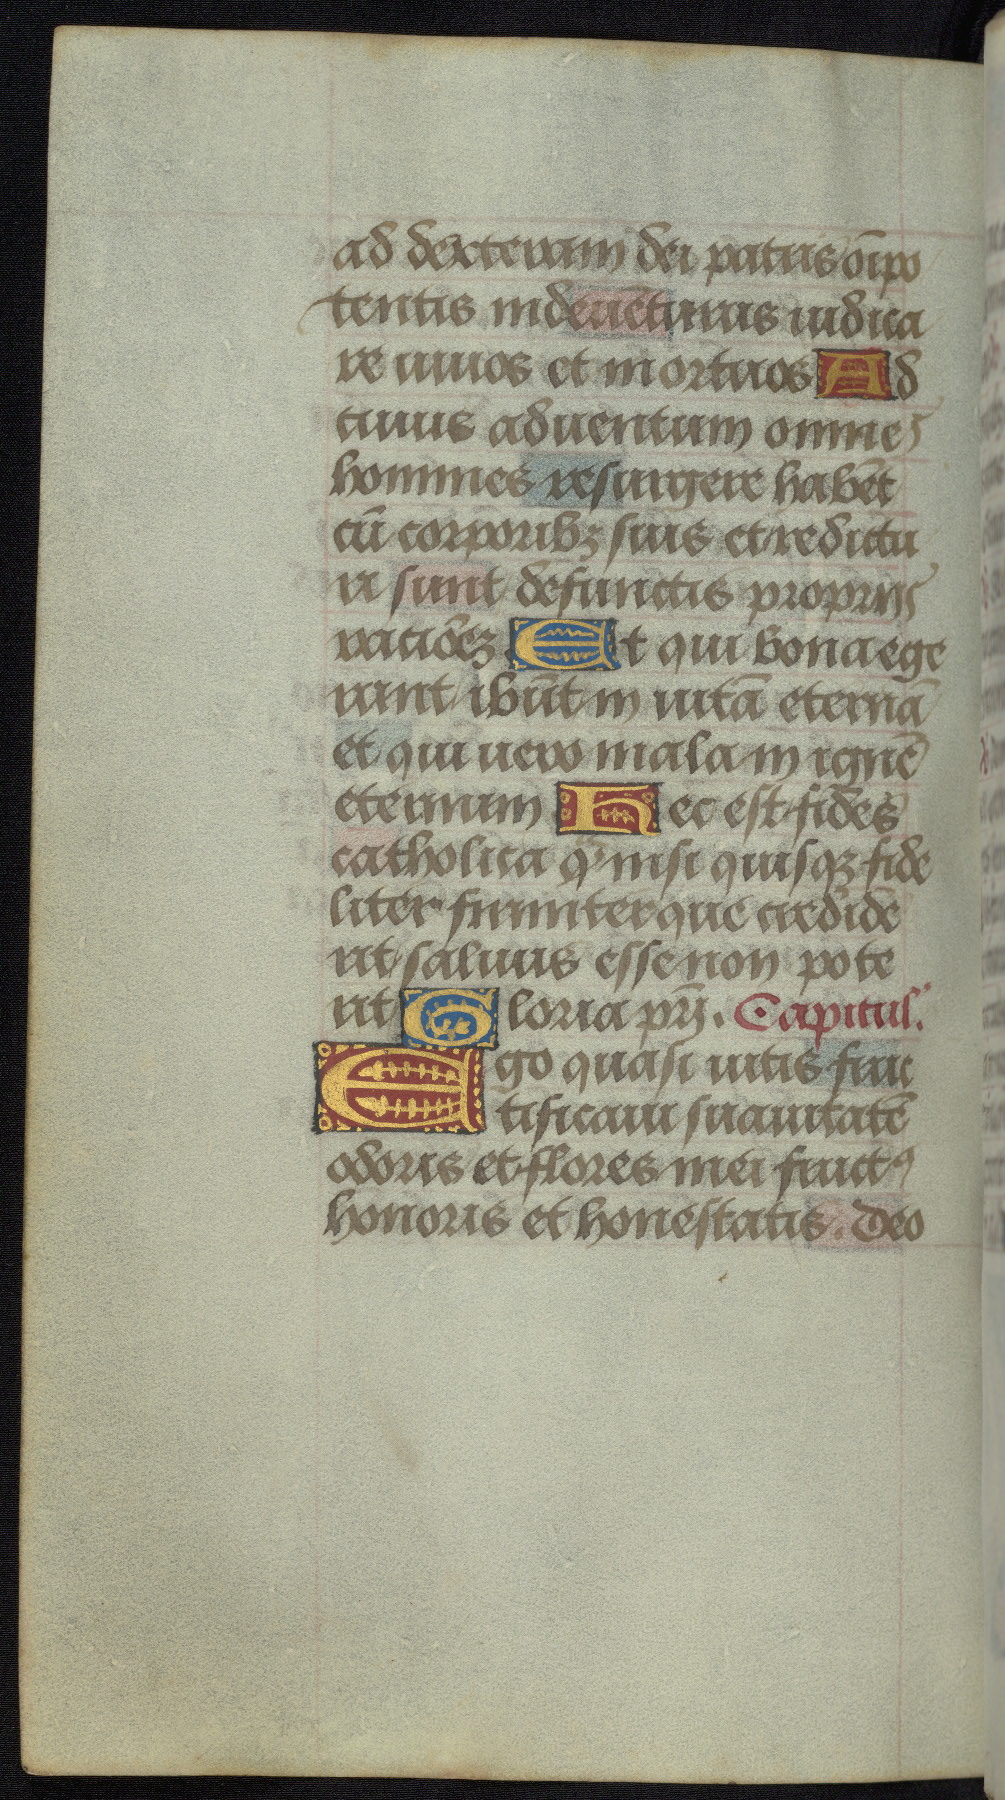 ad dexteram dei patris oīpo
tentis inde uēturus iudica
re uiuos et mortuos Ad
cuius aduentum omnes
homines resurgere habēt
cū corporibꝫ suis et reditu
ri sunt de functis propriis
ratiōēꝫ Et qui bona ege
runt ibūt in uitā eternā
et qui uero mala in ignē
eternum Hec est fides
catholica qͣ nisi quisqꝫ fide
liter firmiterque credide
rit saluus esse non pote
rit Gloria prī. Capitul.
Ego quasi uitis fruc
tificaui suauitatē
odoris et flores mei fructꝰ
honoris et honestatis. Deo